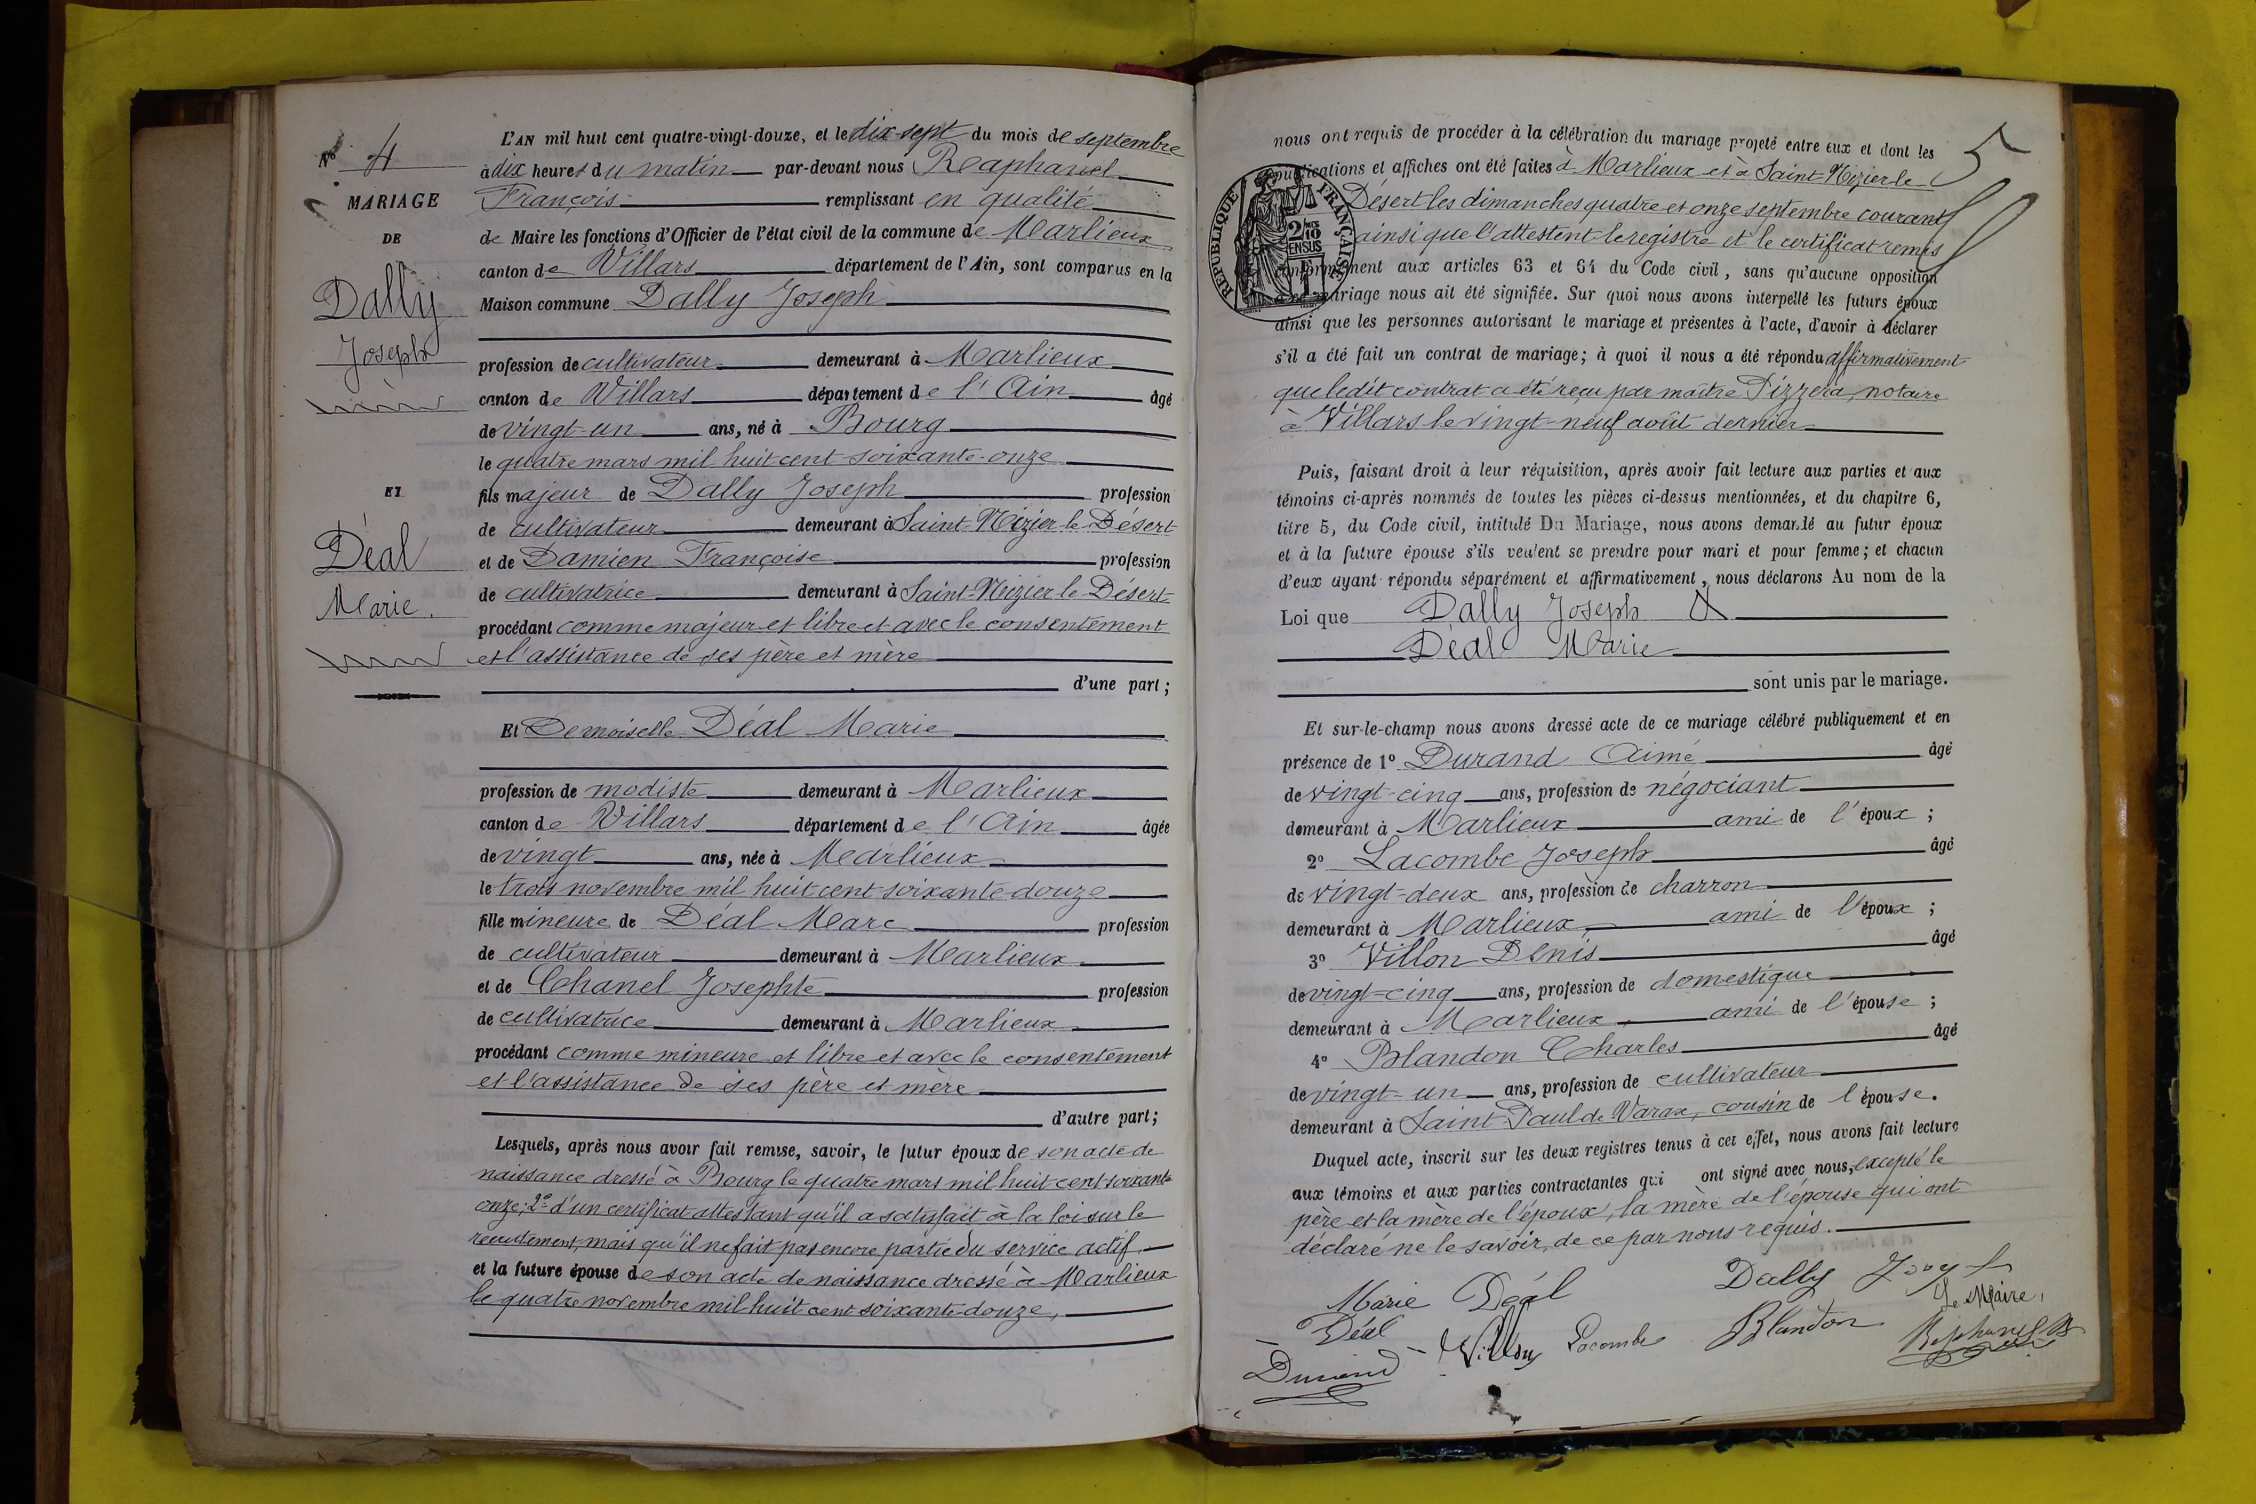 L'AN mil huit cent quatre-vingt-douze, et le dix-sept du mois de septembre
à dix heures du matin par-devant nous Reaphanel
François remplissant en qualité
de Maire les fonctions d'Officier de l'état civil de la commune de Marlieux
canton de Villars département de l'Ain, sont comparus en la
Maison commune Dally Joseph
profession de cultivateur demeurant à Marlieux
canton de Villars département de l'Ain âgé
de vingt-un ans, né à Bourg
le quatre mars mil huit cent soixante-onze
fils majeur de Dally Joseph profession
de cultivateur demeurant à Saint-Nizier-le-Désert
et de Damien Françoise profession
de cultivatrice demeurant à Saint-Nizier-le-Désert
procédant comme majeur et libre et avec le consentement
et l'assistance de ses père et mère
d'une part;
Et Demoiselle Déal Marie
profession de modiste demeurant à Marlieux
canton de Villars département de l'Ain âgée
de vingt ans, née à Marlieux
le trois novembre mil huit cent soixante-douze
fille mineure de Déal Marc profession
de cultivateur demeurant à Marlieux
et de Chanel Josephte profession
de cultivatrice demeurant à Marlieux
procédant comme mineure et libre et avec le consentement
et l'assistance de ses père et mère
d'autre part;
Lesquels, après nous avoir fait remise, savoir, le futur époux de son acte de
naissance dressé à Bourg le quatre mars mil huit cent soixante
onze; 2º d'un certificat attestant qu'il a satisfait à la loi sur le
recrutement, mais qu'il ne fait pas encore partie du service actif.
et la future épouse de son acte de naissance dressé à Marlieux
le quatre novembre mil huit cent soixante-douze,
Nº 4
MARIAGE
DE
Dally
Joseph
ET
Déal
Marie.
5
nous ont requis de procéder à la célébration du mariage projeté entre eux et dont les
publications et affiches ont été faites à Marlieux et à Saint-Nizier-le-
Désert les dimanches quatre et onze septembre courant
ainsi que l'attestent le registre et le certificat remis
conformément aux articles 63 et 64 du Code civil, sans qu'aucune opposition
mariage nous ait été signifiée. Sur quoi nous avons interpellé les futurs époux
ainsi que les personnes autorisant le mariage et présentes à l'acte, d'avoir à déclarer
s'il a été fait un contrat de mariage; à quoi il nous a été répondu affirmativement
que ledit contrat a été reçu par maître Pizzera, notaire
à Villars le vingt-neuf août dernier
RÉPUBLIQUE FRANÇAISE
2/10
EN SUS
Puis, faisant droit à leur réquisition, après avoir fait lecture aux parties et aux
témoins ci-après nommés de toutes les pièces ci-dessus mentionnées, et du chapitre 6,
titre 5, du Code civil, intitulé Du Mariage, nous avons demandé au futur époux
et à la future épouse s'ils veulent se prendre pour mari et pour femme; et chacun
d'eux ayant répondu séparément et affirmativement, nous déclarons Au nom de la
Loi que Dally Joseph &
Déal Marie
sont unis par le mariage.
Et sur-le-champ nous avons dressé acte de ce mariage célébré publiquement et en
présence de 1º Durand Aimé âgé
de vingt-cinq ans, profession de négociant
demeurant à Marlieux ami de l'époux;
2º Lacombe Joseph âgé
de vingt-deux ans, profession de charron
demeurant à Marlieux, ami de l'époux;
3º Villon Denis âgé
de vingt-cinq ans, profession de domestique
demeurant à Marlieux, ami de l'épouse;
4º Blandon Charles âgé
de vingt-un ans, profession de cultivateur
demeurant à Saint-Paul de Varax, cousin de l'épouse.
Duquel acte, inscrit sur les deux registres tenus à cet effet, nous avons fait lecture
aux témoins et aux parties contractantes qui ont signé avec nous, excepté le
père et la mère de l'époux, la mère de l'épouse qui ont
déclaré ne le savoir, de ce par nous requis.
Marie Déal
Dally
Déal
Villon
Lacombe
Blandon
Le Maire,
Durand